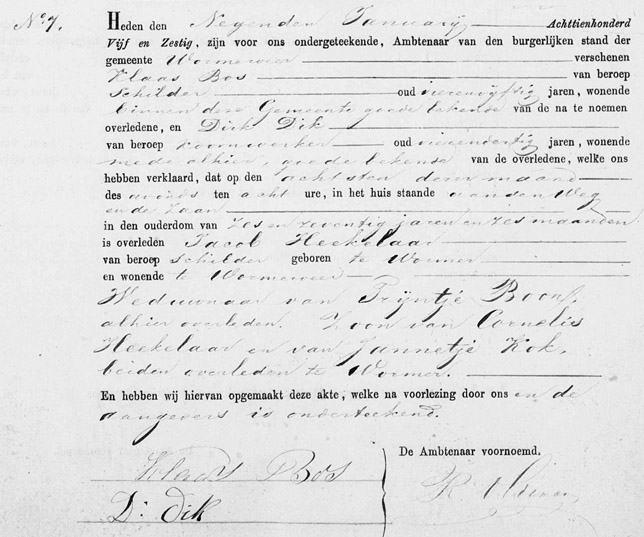 N° 7. Heden den Negenden Januarij Achttienhonderd
Vijf en Zestig, zijn voor ons ondergeteekende, Ambtenaar van den burgerlijken stand der
gemeente Wormerveer verschenen
Klaas Bos van beroep
Schilder oud vierenvijftig jaren, wonende
binnen deze Gemeente goede bekende van de na te noemen
overledene, en Dirk Dik
van beroep oud vierendertig jaren, wonende
mede alhier, goede bekende van de overledene, welke ons
hebben verklaard, dat op den achtsten dezer maand
des avonds ten acht ure, in het huis staande aan den Weg
en de Zaan
in den ouderdom van zes en zeventig jaren en zes maanden
is overleden Jacob Heekelaar
van beroep schilder geboren te Wormer
en wonende te Wormerveer
Weduwnaar van Trijntje Boon,
alhier overleden. Zoon van Cornelis
Heekelaar en van Jannetje Kok,
beiden overleden te Wormer.
En hebben wij hiervan opgemaakt deze akte, welke na voorlezing door ons en de
aangevers is onderteekend.
De Ambtenaar voornoemd.
Klaas Bos
D: Dik